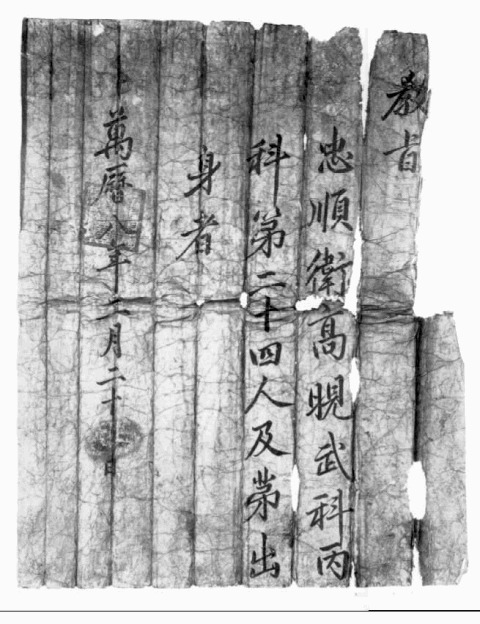 教旨
忠順衛高晛武科丙
科第二十四人及第出
身者
萬曆八年二月二十日